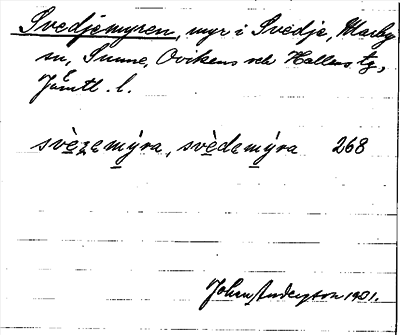 Svedjemyren, myr i Svedje, Marby
sn, Sunne, Ovikens och Hallens tg,
Jämtl. l.
svèzemýra, svèdemýra 268
Johan Anderson 1901.